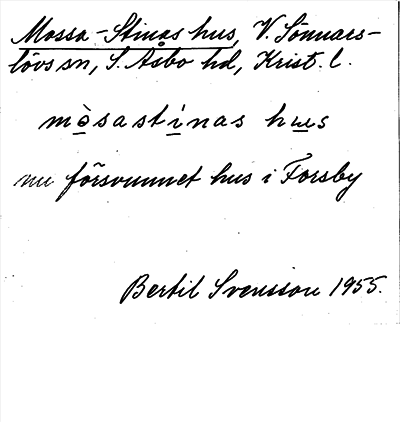 Mossa-Stinas hus, V. Sönnars-
lövs sn, S. Åsbo hd, Krist. l.
mòsastinas hus
nu försvunnet hus i Forsby
Bertil Svensson 1955.